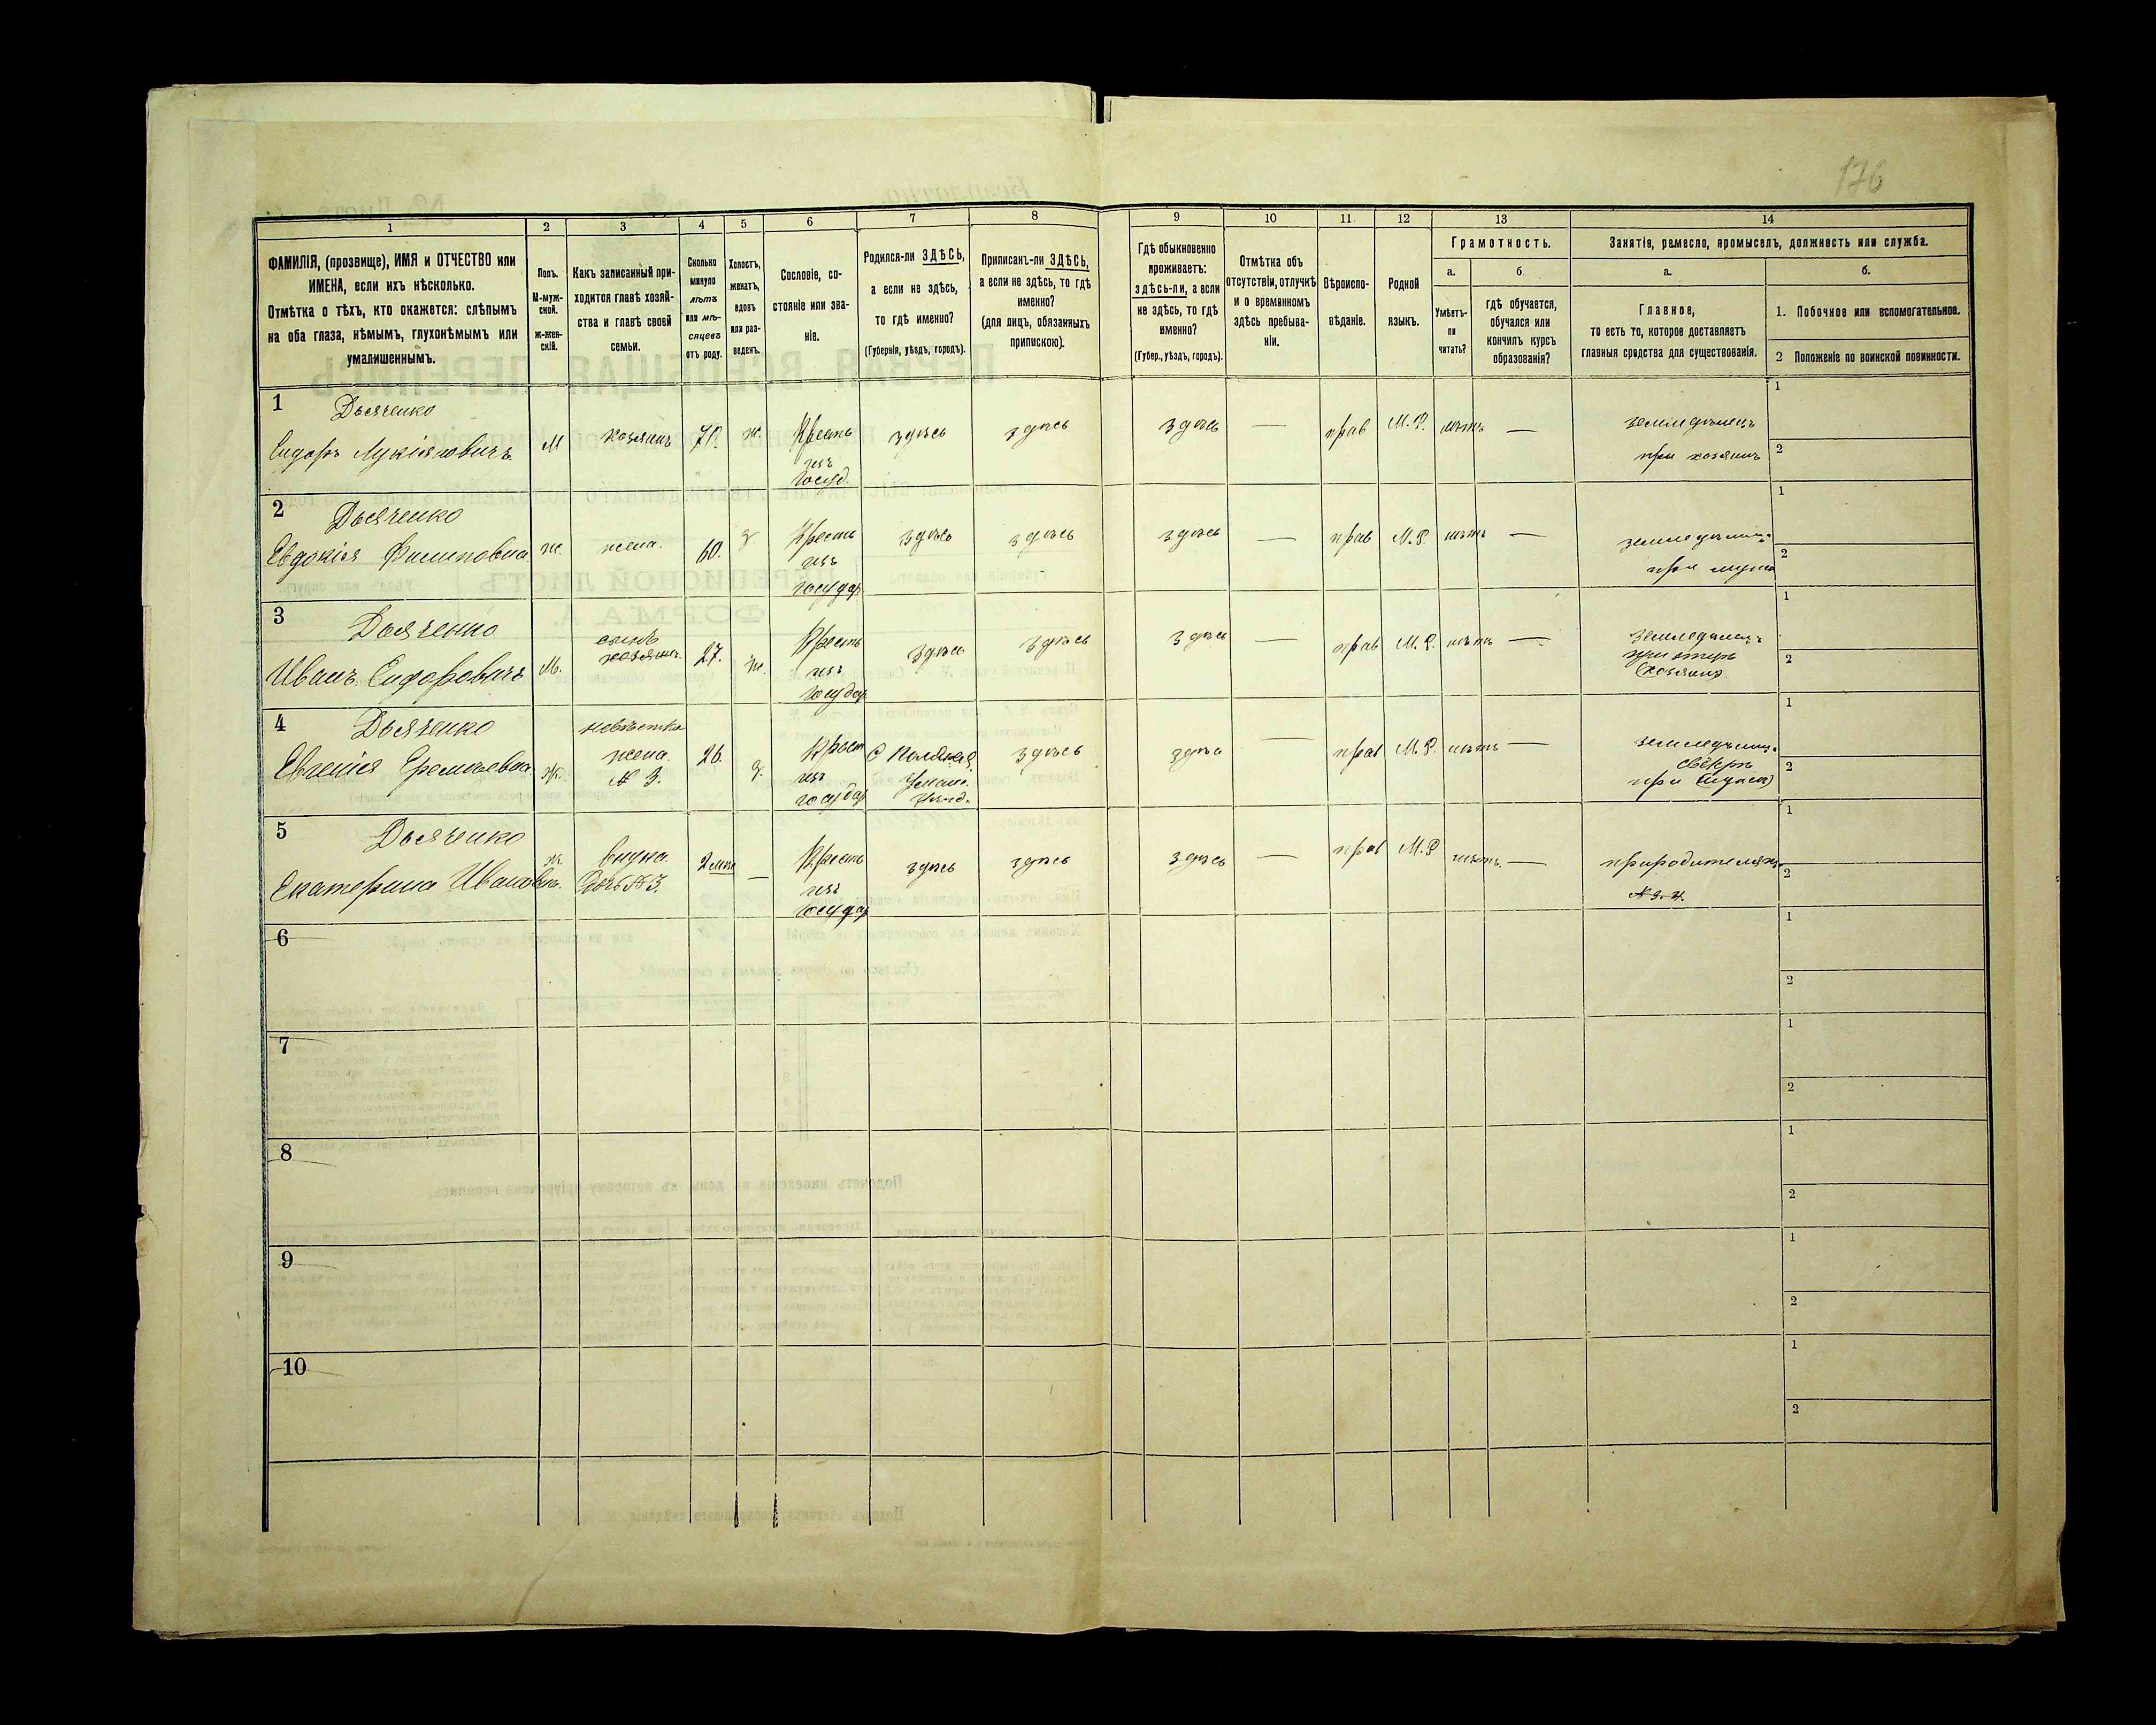 176
1 2 3 4 5 6 7 8 9 10 11 12 13 14
ФАМИЛІЯ, (прозвище), ИМЯ и ОТЧЕСТВО или
ИМЕНА, если ихъ нѣсколько.
Отмѣтка о тѣхъ, кто окажется: слѣпымъ
на оба глаза, нѣмымъ, глухонѣмымъ или
умалишеннымъ.
Полъ.
М-муж-
ской.
ж-жен-
скій.
Какъ записанный при-
ходится главѣ хозяй-
ства и главѣ своей
семьи.
Сколько
минуло
лѣтъ
или мѣ-
сяцевъ
отъ роду.
Холостъ,
женатъ,
вдовъ
или раз-
веденъ.
Сословіе, со-
стояніе или зва-
ніе.
Родился-ли ЗДѢСЬ,
а если не здѣсь,
то гдѣ именно?
(Губернія, уѣздъ, городъ).
Приписанъ-ли ЗДѢСЬ,
а если не здѣсь, то гдѣ
именно?
(для лицъ, обязанныхъ
припискою).
Гдѣ обыкновенно
проживаетъ:
здѣсь-ли, а если
не здѣсь, то гдѣ
именно?
(Губер., уѣздъ, городъ).
Отмѣтка объ
отсутствіи, отлучкѣ
и о временномъ
здѣсь пребыва-
ніи.
Вѣроиспо-
вѣданіе.
Родной
языкъ.
Грамотность.
а.
Умѣетъ-
ли
читать?
б
гдѣ обучается,
обучался или
кончилъ курсъ
образованія?
Занятіе, ремесло, промыселъ, должность или служба.
а.
Главное,
то есть то, которое доставляетъ
главныя средства для существованія.
б.
1. Побочное или вспомогательное.
2 Положеніе по воинской повинности.
1 Дьяченко
Сидоръ Лукіяновичъ
М
хозяинъ
70.
ж.
Кресть
изъ
Госуд.
здѣсь
здѣсь
здѣсь
—
прав
М.Р.
нѣтъ
—
земледѣлецъ
при хозяинъ
1
2
2 Дьяченко
Евдокія Филиповна
ж.
жена.
60.
з
Кресть
изъ
Государ
здѣсь
здѣсь
здѣсь
—
прав
М.Р.
нѣтъ
—
земледѣлиц.
при мужа
1
2
3 Дьяченко
Иванъ Сидоровичъ
М.
сынъ
хозяинъ.
27.
ж.
Кресть
изъ
Государ
здѣсь
здѣсь
здѣсь
—
прав
М.Р.
нѣтъ
—
земледѣлиц.
при отцѣ
(хозяинъ
1
2
4 Дьяченко
Евгенія Еремѣевна
Ж.
невѣстка
жена.
№ 3.
26.
з.
Крест
изъ
государ
С
Уман.
уѣзд.
здѣсь
здѣс
—
прав
М.Р.
нѣтъ
—
земледѣлиц.
свёкръ
при (мужа)
1
2
5 Дьяченко
Екатерина Ивановна.
ж.
внука.
Дочь №3.
2 мѣс
—
Кресть
изъ
Государ
здѣсь
здѣсь
здѣсь
—
прав
М.Р
нѣтъ.
—
при родителяхъ
№ 3. 4.
1
2
6
1
2
7
1
2
8
1
2
9
1
2
10
1
2